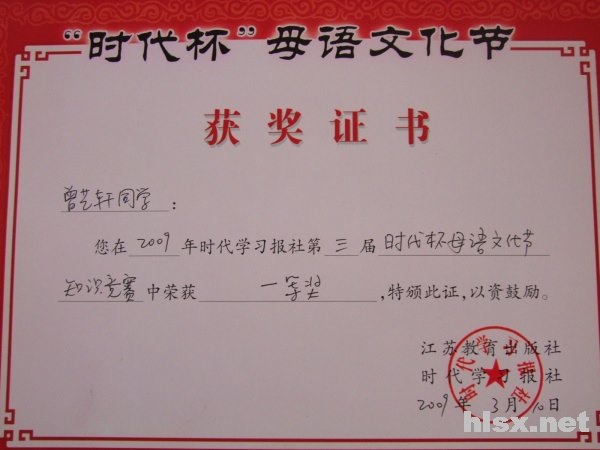 “时代杯”母语文化节
获奖证书
曾艺轩同学：
您在2009年时代学习报社第三届时代杯母语文化节
知识竞赛中荣获一等奖，特颁此证，以资鼓励。
江苏教育出版社
时代学习报社
2009年3月10日
时代学习报社
hlsx.net